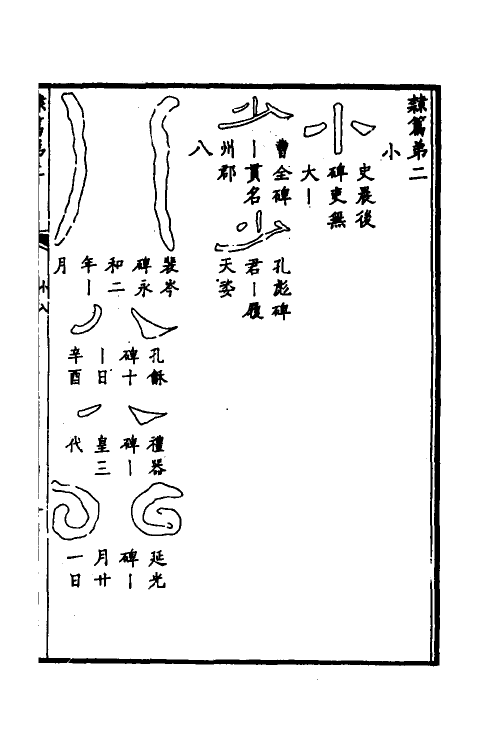 隸篇弟二
小
小
史晨後
碑吏無
大丨
少
曹全碑
丨貫名
州郡
少
孔彪碑
君丨履
天姿
八
八
裴岑
碑永
和二
年丨
月
八
孔龢
碑十
丨日
辛酉
八
禮器
碑丨
皇三
代
八
延光
碑丨
月廿
一日
小八